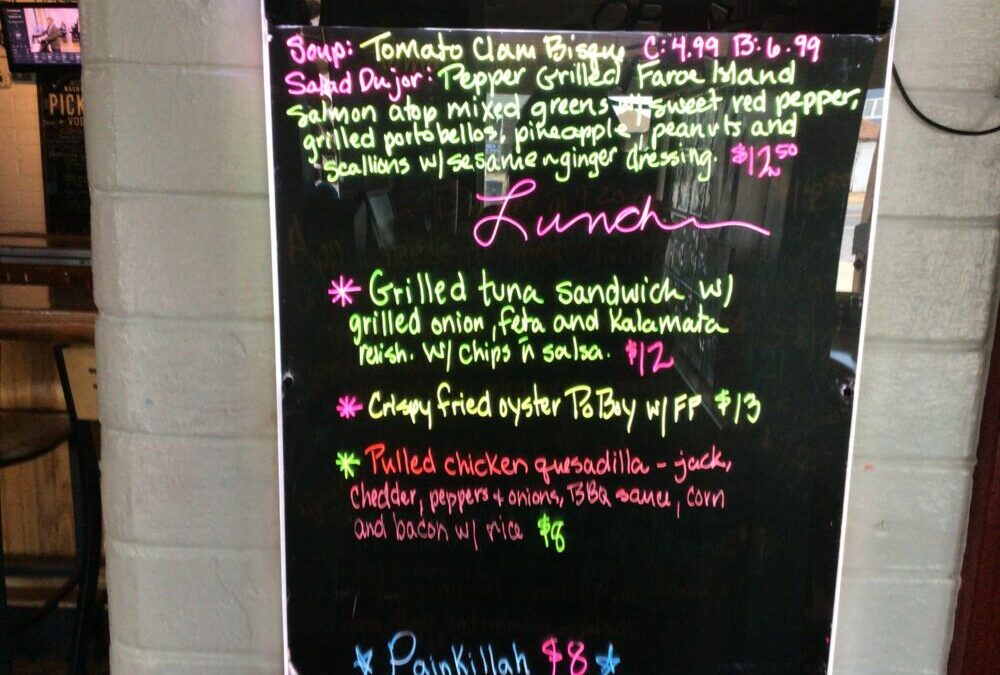 Soup: Tomato Clam Bisque C: 4.99 B: 6.99
Salad Dujor: Pepper Grilled Faroe Island
salmon atop mixed greens w/ sweet red pepper,
grilled portobellos, pineapple, peanuts and
scallions w/ sesame~ginger dressing. $12.50
Lunch
* Grilled tuna sandwich w/
grilled onion, feta and Kalamata
relish. w/ chips n salsa. $12
* Crispy fried oyster Po Boy w/ FF $13
* Pulled chicken quesadilla - jack,
chedder, peppers + onions, BBQ sauce, corn
and bacon w/ rice $8
PainKillah $8
PICK